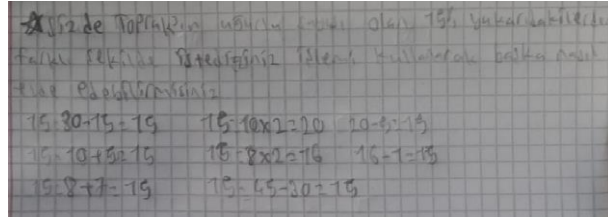 Sizde Toprak'ın uğurlu sayısı olan 15'i yukarıdakilerden
farklı şekilde istediğiniz işlemi kullanarak başka nasıl
elde edebilirsiniz
15=30-15=15 15=10x2=20 20-5=15
15=10+5=15 15=8x2=16 16-1=15
15=8+7=15 15=45-30=15